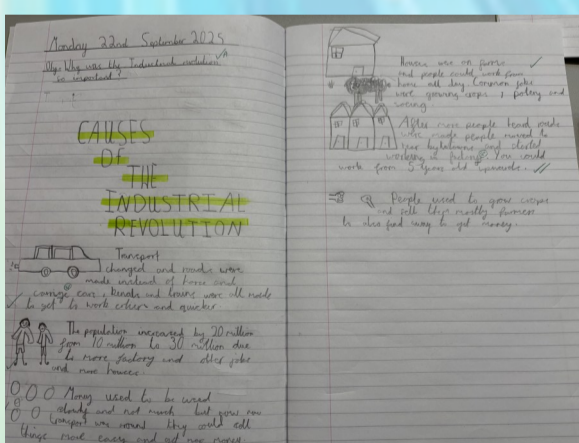 Monday 22nd September 2025
Why was the Industrial revolution
so important?
CAUSES
OF
THE
INDUSTRIAL
REVOLUTION
Transport
changed and roads were
made instead of horse and
carrige cars, kenals and trains were all made
to get to work easier and quicker
The population increased by 20 million
from 10 million to 30 million due
to more factory and other jobs
and more houses.
Money used to be used
slowly and not much but now
transport was around they could sell
things more easier and get more money
Houses were on farms
and people could work from
home all day. Common jobs
were growing crops, potery and
sowing.
After more people heard roads
were made people moved to
and started
working in factory. You would
work from 5 years old upwards.
People used to grow crops
and sell them mostly farmers
to also find way to get money.